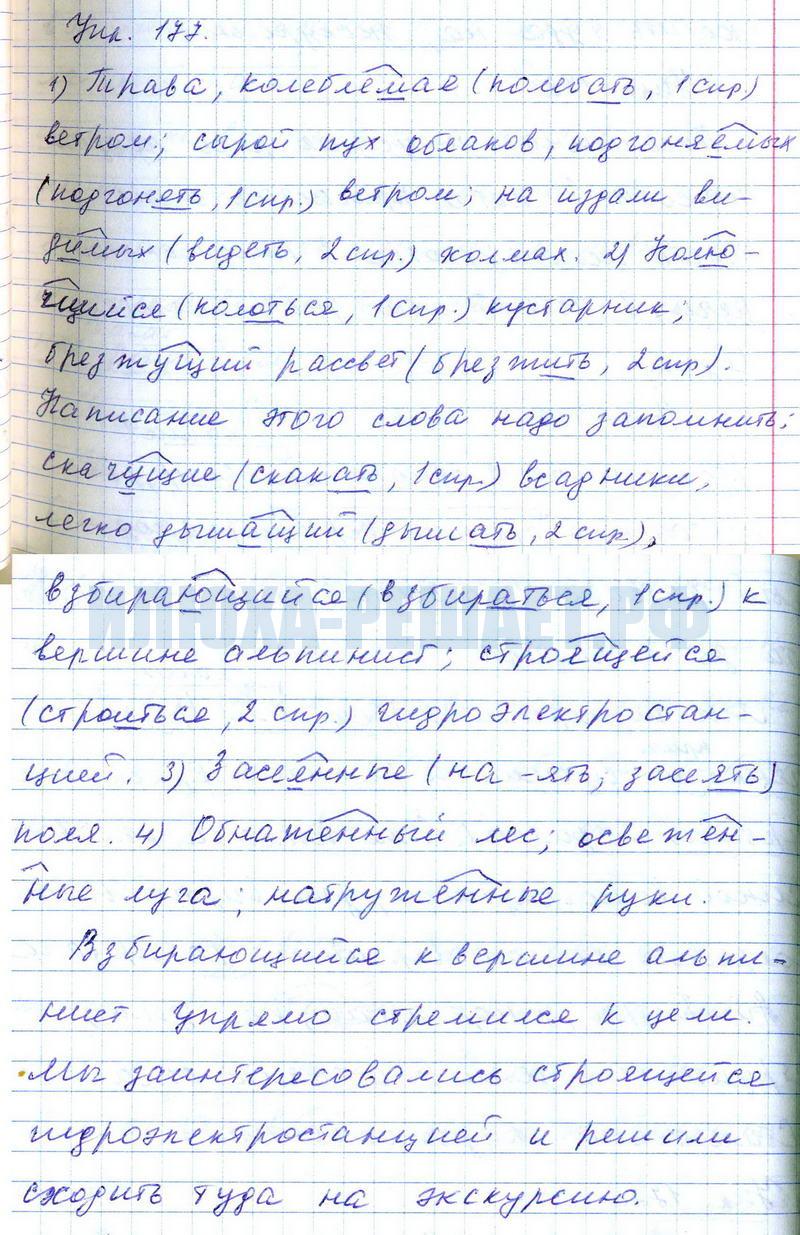 Упр. 177.
1) Трава, колеблемая (колебать, 1 спр.)
ветром; сырой пух облаков, подгоняемых
(подгонять, 1 спр.) ветром; на издали ви-
димых (видеть, 2 спр.) холмах. 2) Колю-
щийся (колоться, 1 спр.) кустарник;
брезжущий рассвет (брезжить, 2 спр).
Написание этого слова надо запомнить;
скачущие (скакать, 1 спр.) всадники,
легко дышащий (дышать, 2 спр.),
взбирающийся (взбираться, 1 спр.) к
вершине альпинист; строящейся
(строиться, 2 спр.) гидроэлектростан-
цией. 3) Засеянные (на -ять, засеять)
поля. 4) Обнажённый лес; освежён-
ные луга; натруженные руки.
Взбирающийся к вершине альпи-
нист упрямо стремился к цели.
Мы заинтересовались строящейся
гидроэлектростанцией и решили
сходить туда на экскурсию.
ИЛЮХА-РЕШАЕТ.РФ